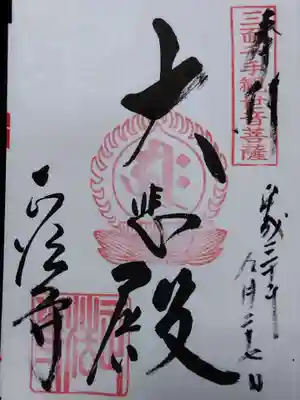 奉拝
三面千手観世音菩薩
平成三十年
八月二十七日
大悲殿
正法寺